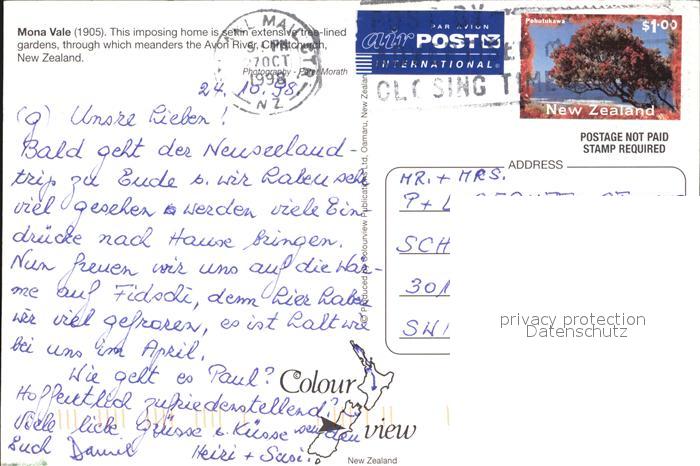 Mona Vale (1905). This imposing home is set in extensive tree-lined
gardens, through which meanders the Avon River, Christchurch,
New Zealand.
Photography - Peter Morath
MAIL
PM
OCT
1998
NZ
PAR AVION
air POST
INTERNATIONAL
CLOSING TIME
Pohutukawa
$1·00
New Zealand
POSTAGE NOT PAID
STAMP REQUIRED
24.10.98
(9) Unsre Lieben!
Bald geht der Neuseeland-
trip zu Ende u. wir haben sehr
viel gesehen & werden viele Ein
drücke nach Hause bringen.
Nun freuen wir uns auf die Wär-
me auf Fidschi, denn hier haben
wir viel gefroren, es ist halt wie
bei uns im April.
Wie geht es Paul?
Hoffentlich zufriedenstellend?
Viele liebe Grüsse u. Küsse senden
Euch Heiri + Susi.
Produced by Colourview Publications Ltd, Oamaru, New Zealand
ADDRESS
MR. + MRS.
P + L
SCH
301
SWI
privacy protection
Datenschutz
Colour
view
New Zealand